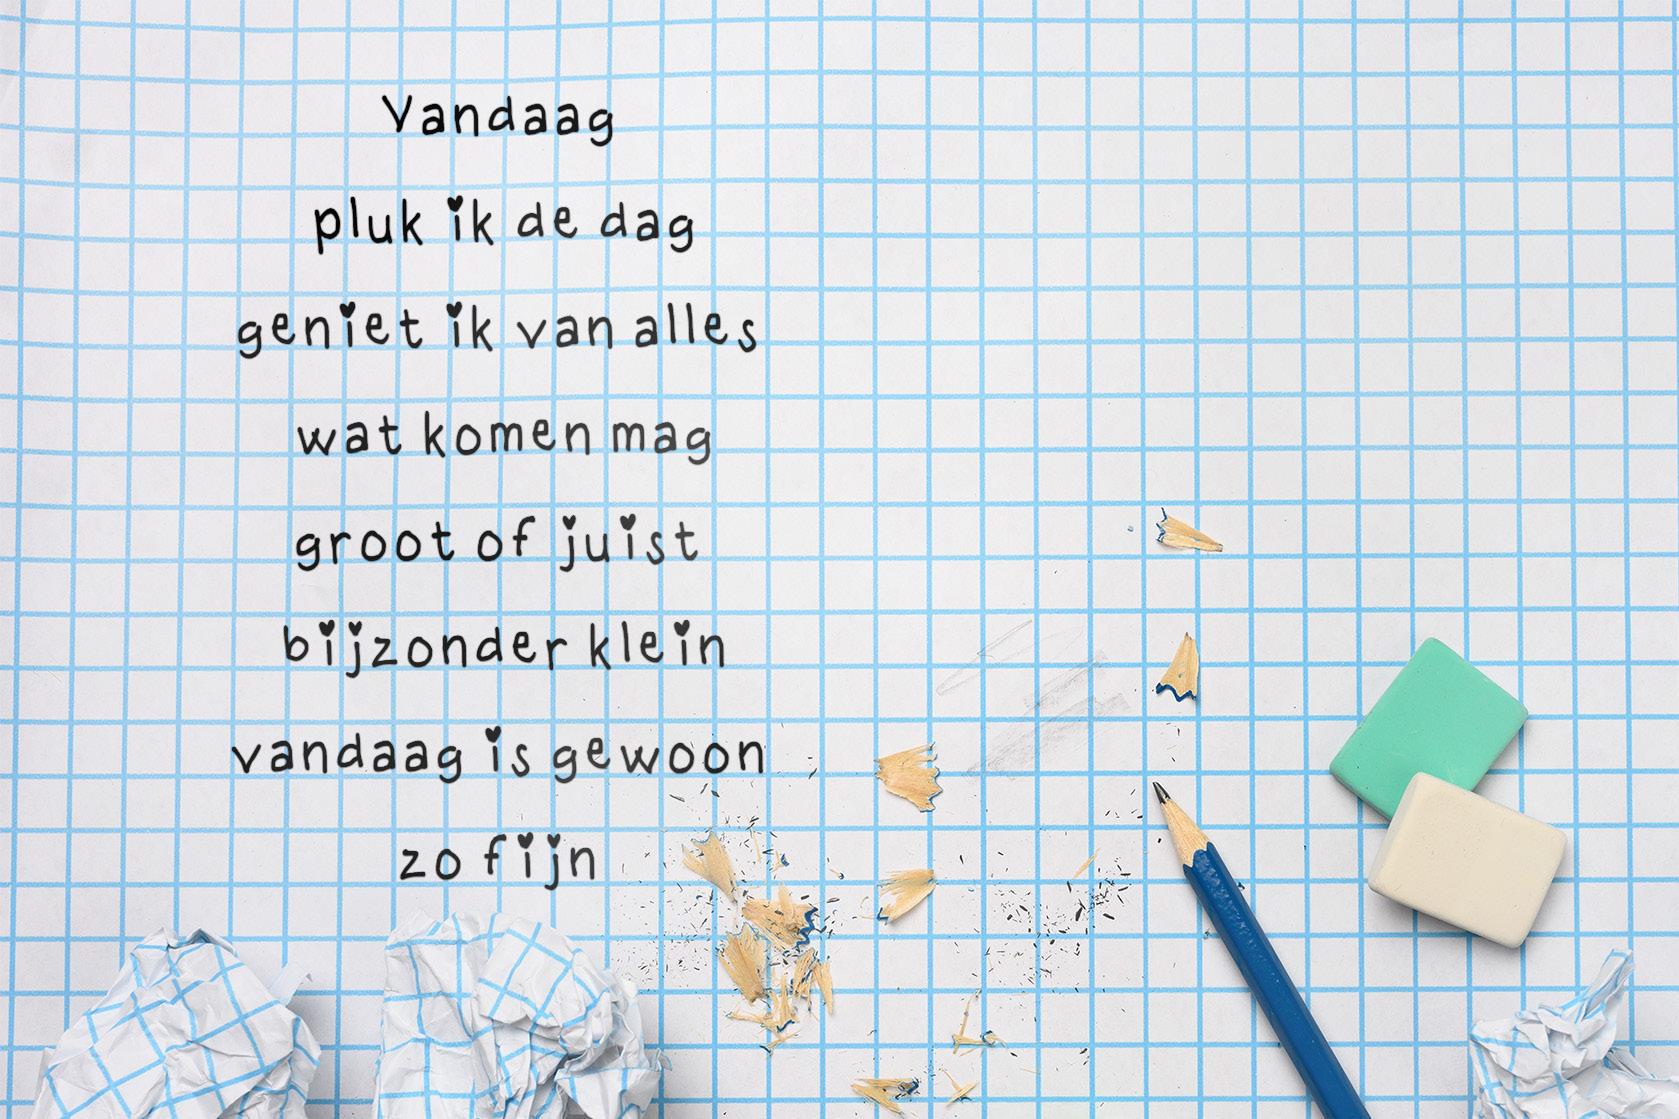 Vandaag
pluk ik de dag
geniet ik van alles
wat komen mag
groot of juist
bijzonder klein
vandaag is gewoon
zo fijn